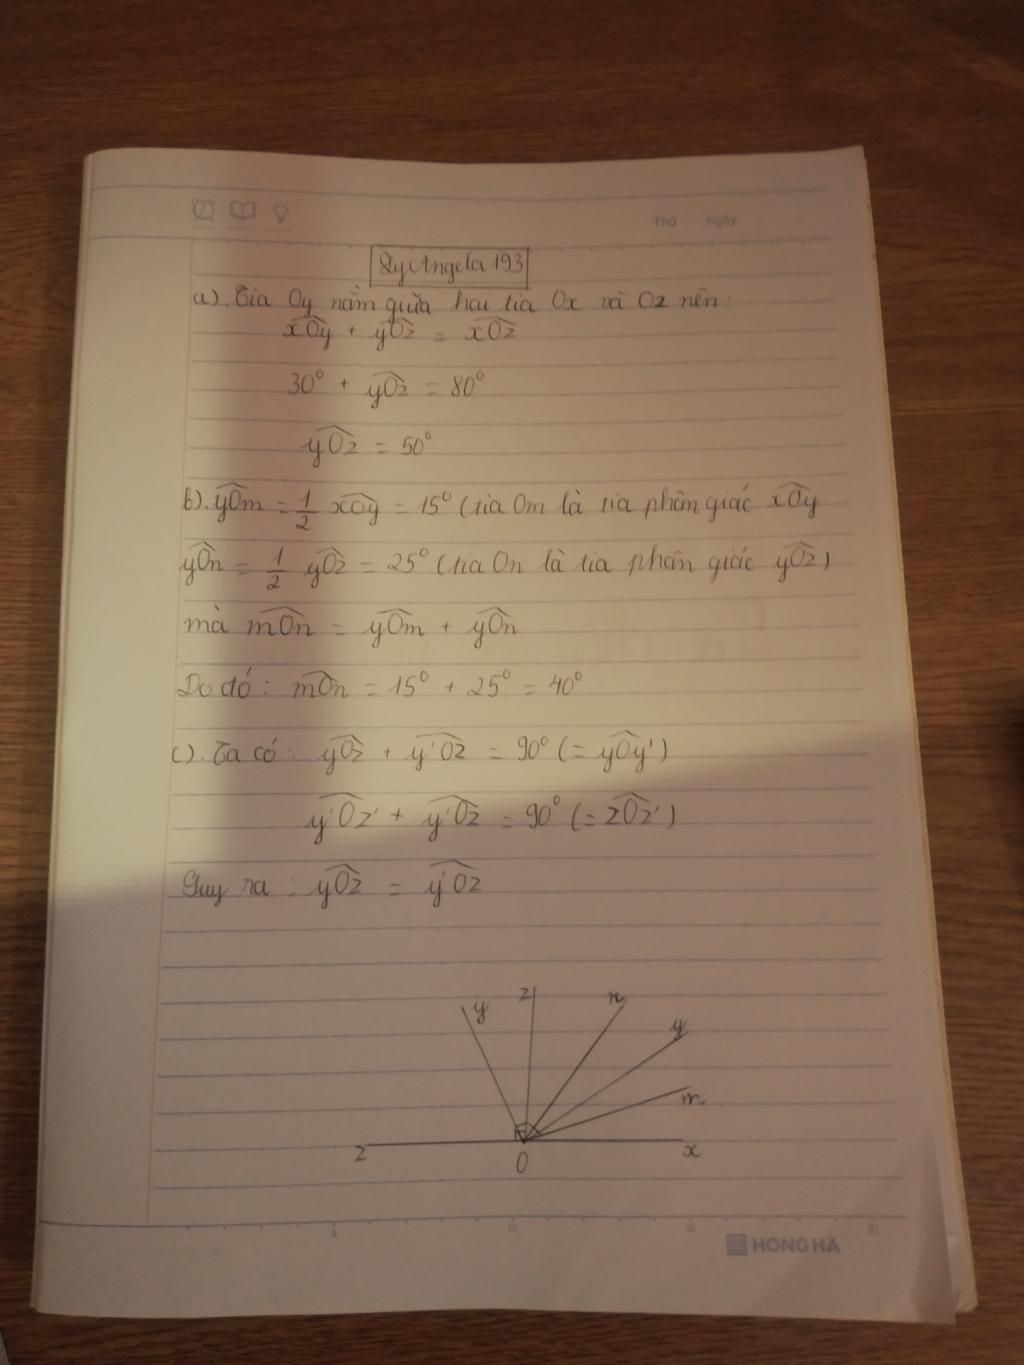 Thứ ngày
LyAngela 193
a). Tia Oy nằm giữa hai tia Ox và Oz nên:
xOy + yOz = xOz
30° + yOz = 80°
yOz = 50°
b). yOm = 1/2 xOy = 15° (tia Om là tia phân giác xOy
yOn = 1/2 yOz = 25° (tia On là tia phân giác yOz)
mà mOn = yOm + yOn
Do đó: mOn = 15° + 25° = 40°
c). Ta có: yOz + y'Oz = 90° (= yOy')
y'Oz' + y'Oz = 90° (= zOz')
Suy ra: yOz = y'Oz
y z n y m
z O x
5 10 15 20
HONG HA